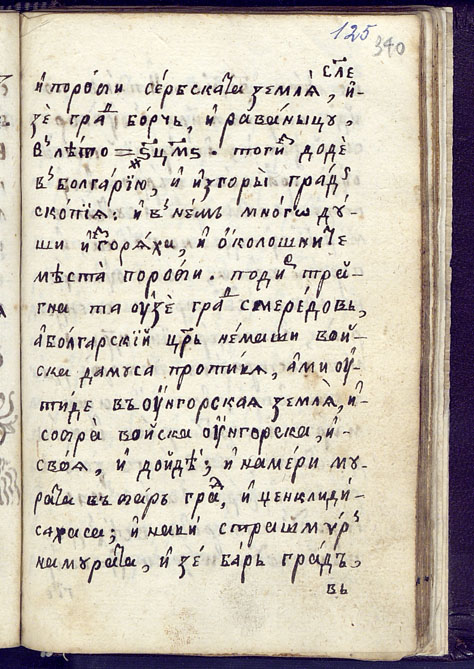 125
340
сл̃е
и҆ поробѝ и сербскатⷶа земля̀, и҆-
зѐ граⷣ борчь, и҆ раваницу,
в̾ лѣто ҂ѕцм̃ѕ. тогиⷡ҇ додѐ
в̾ болгарїю, и҆ и҆згорѝ град̾
скопїя: и҆ в̾ немъ многѡ ду-
ши и҆ⷥгоряха, и҆ о҆колошните
мѣста поробѝ. подиⷬ҇ трай-
гна та ᲂу҆зѐ граⷣ смередовъ,
а болгарскїй цр҃ь немаши вой-
ска да муса противя, ами ᲂу҆-
тиде въ ᲂу҆нгорская земля, и҆-
собра̀ войска ᲂу҆нгорска, и҆-
своя, и҆ дойдѐ; и҆ намери му-
рата въ варь граⷣ, и҆ ценклиди-
сахаса; и҆ паки страшм ур̾
на мурата, и҆ зѐ барь градъ,
въ